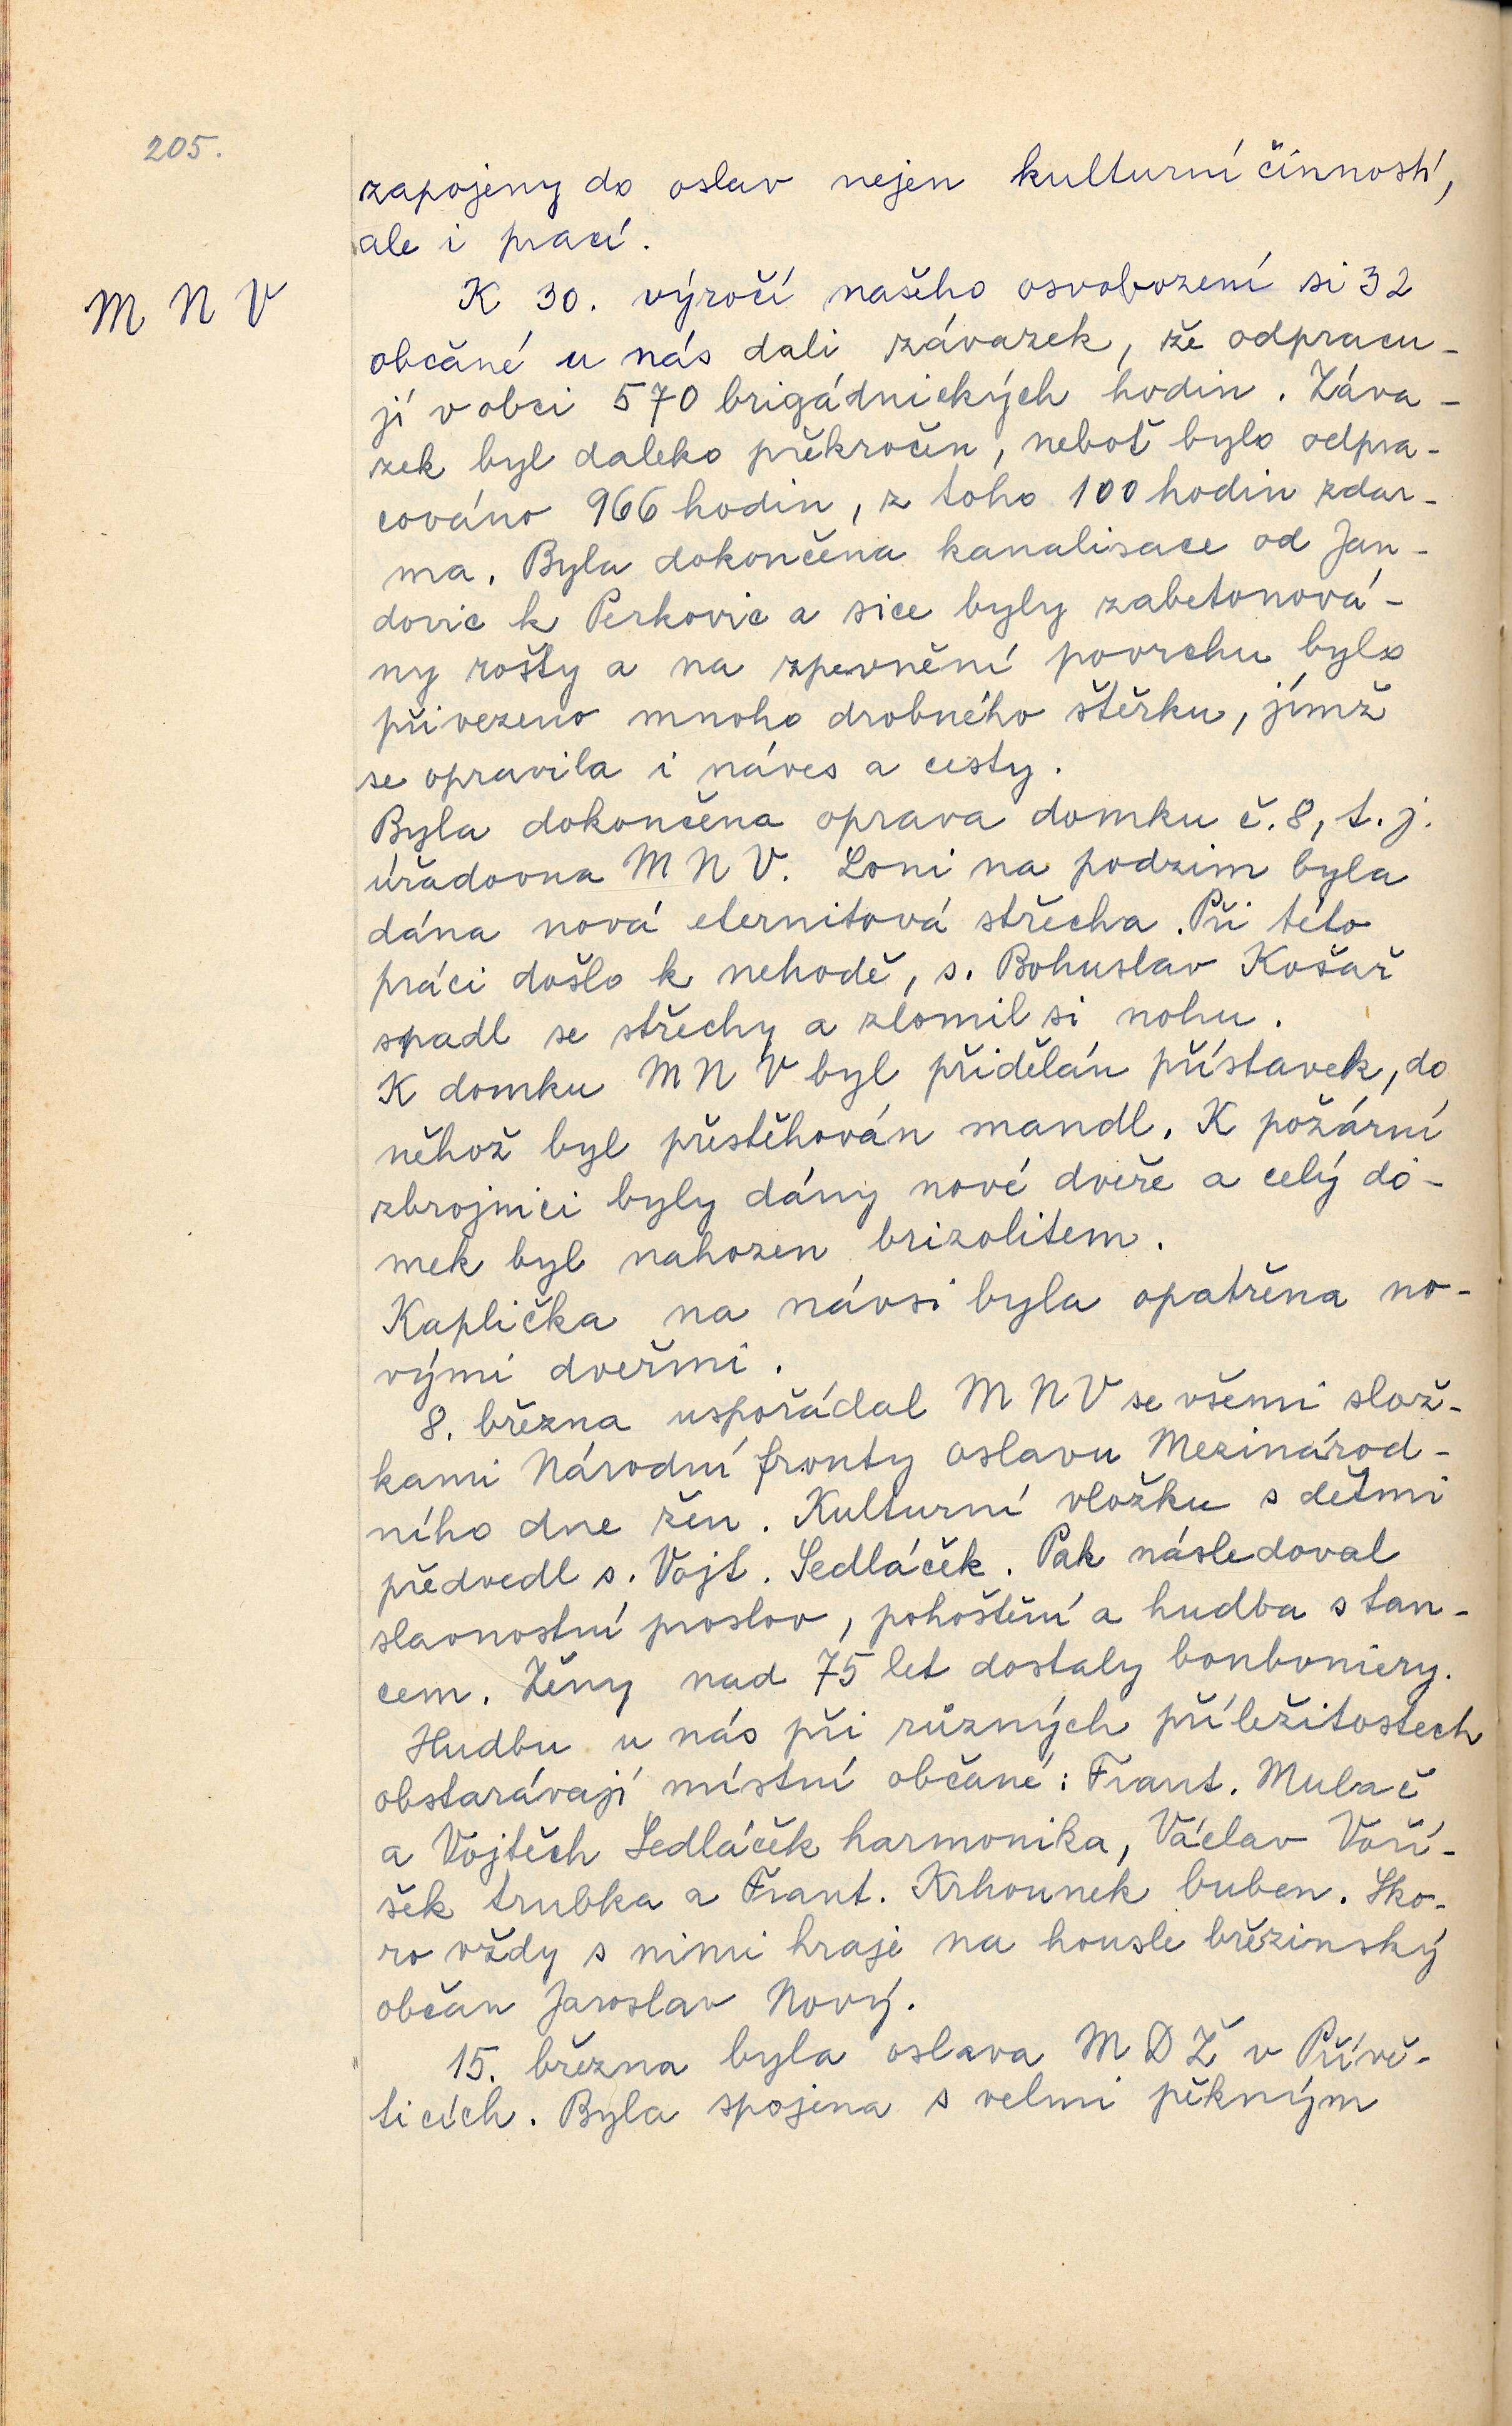 205.
zapojeny do oslav nejen kulturní činností,
ale i prací.
M N V
K 30. výročí našeho osvobození si 32
občané u nás dali závazek, že odpracu-
jí v obci 570 brigádnických hodin. Záva-
zek byl daleko překročen, neboť bylo odpra-
cováno 966 hodin, z toho 100 hodin zdar-
ma. Byla dokončena kanalisace od Jan-
dovic k Perkovic a sice byly zabetonová-
ny rošty a na zpevnění povrchu bylo
přivezeno mnoho drobného štěrku, jímž
se opravila i náves a cesty.
Byla dokončena oprava domku č. 8, t. j.
úřadovna M N V. Loni na podzim byla
dána nová eternitová střecha. Při této
práci došlo k nehodě, s. Bohuslav Košař
spadl se střechy a zlomil si nohu.
K domku M N V byl přidělán přístavek, do
něhož byl přestěhován mandl. K požární
zbrojnici byly dány nové dveře a celý do-
mek byl nahozen brizolitem.
Kaplička na návsi byla opatřena no-
vými dveřmi.
8. března uspořádal M N V se všemi slož-
kami Národní fronty oslavu Mezinárod-
ního dne žen. Kulturní vložku s dětmi
předvedl s. Vojt. Sedláček. Pak následoval
slavnostní proslov, pohoštění a hudba s tan-
cem. Ženy nad 75 let dostaly bonboniery.
Hudbu u nás při různých příležitostech
obstarávají místní občané: Frant. Mulač
a Vojtěch Sedláček harmonika, Václav Voří-
šek trubka a Frant. Krhounek buben. Sko-
ro vždy s nimi hraje na housle březinský
občan Jaroslav Nový.
15. března byla oslava M D Ž v Přívě-
ticích. Byla spojena s velmi pěkným